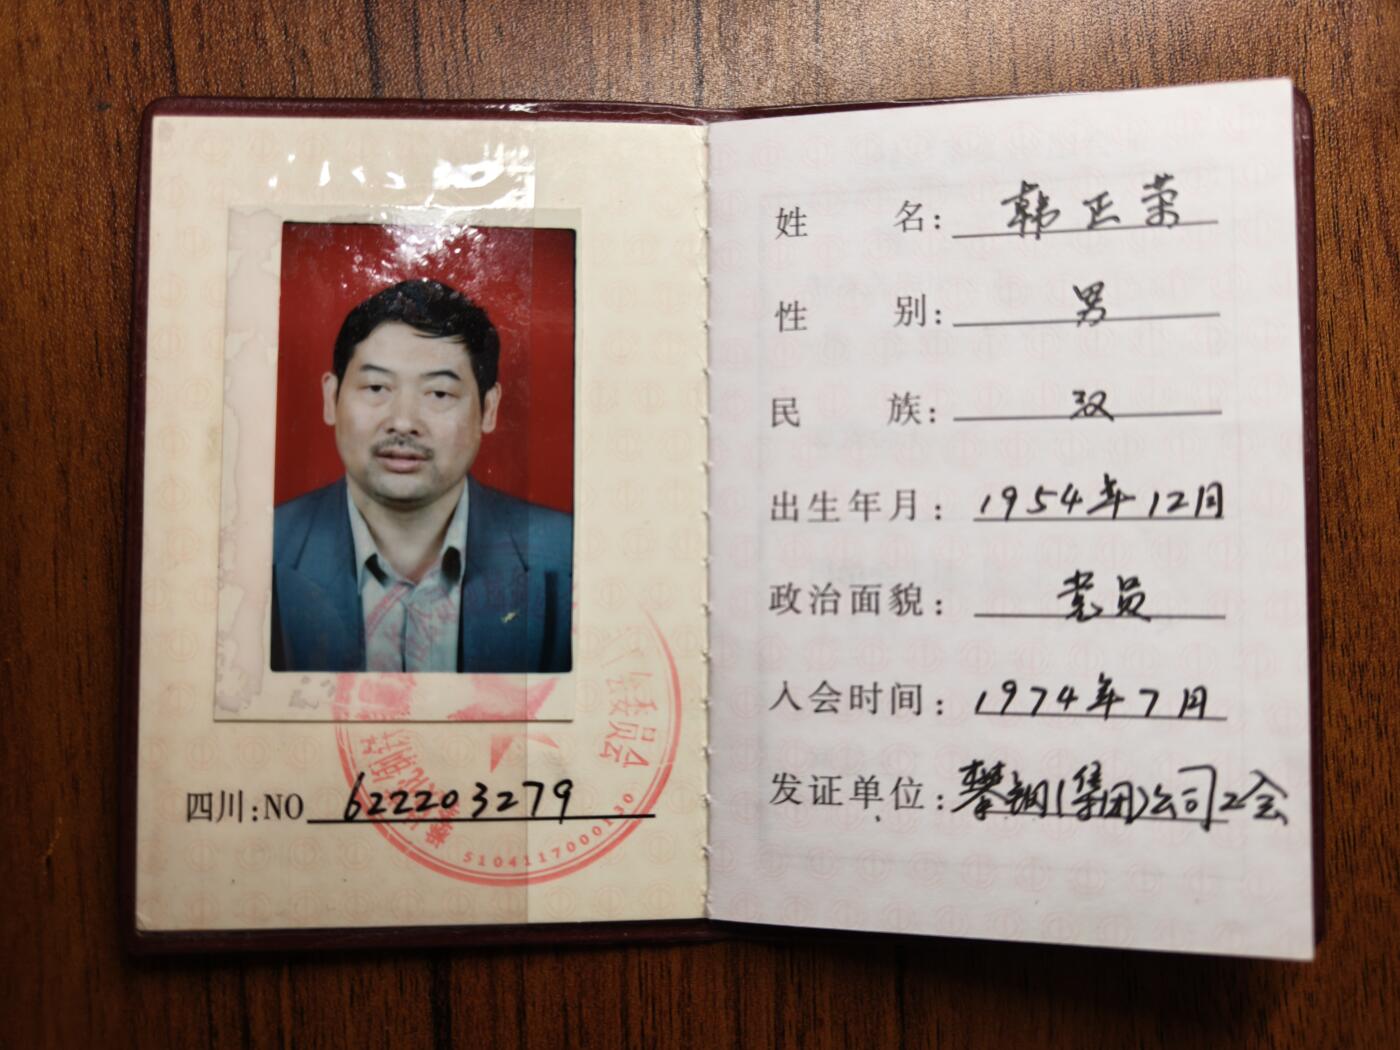 四川:NO 622203279
5104117000130
姓名: 韩正荣
性别: 男
民族: 汉
出生年月: 1954年12月
政治面貌: 党员
入会时间: 1974年7月
发证单位: 攀钢(集团)公司工会